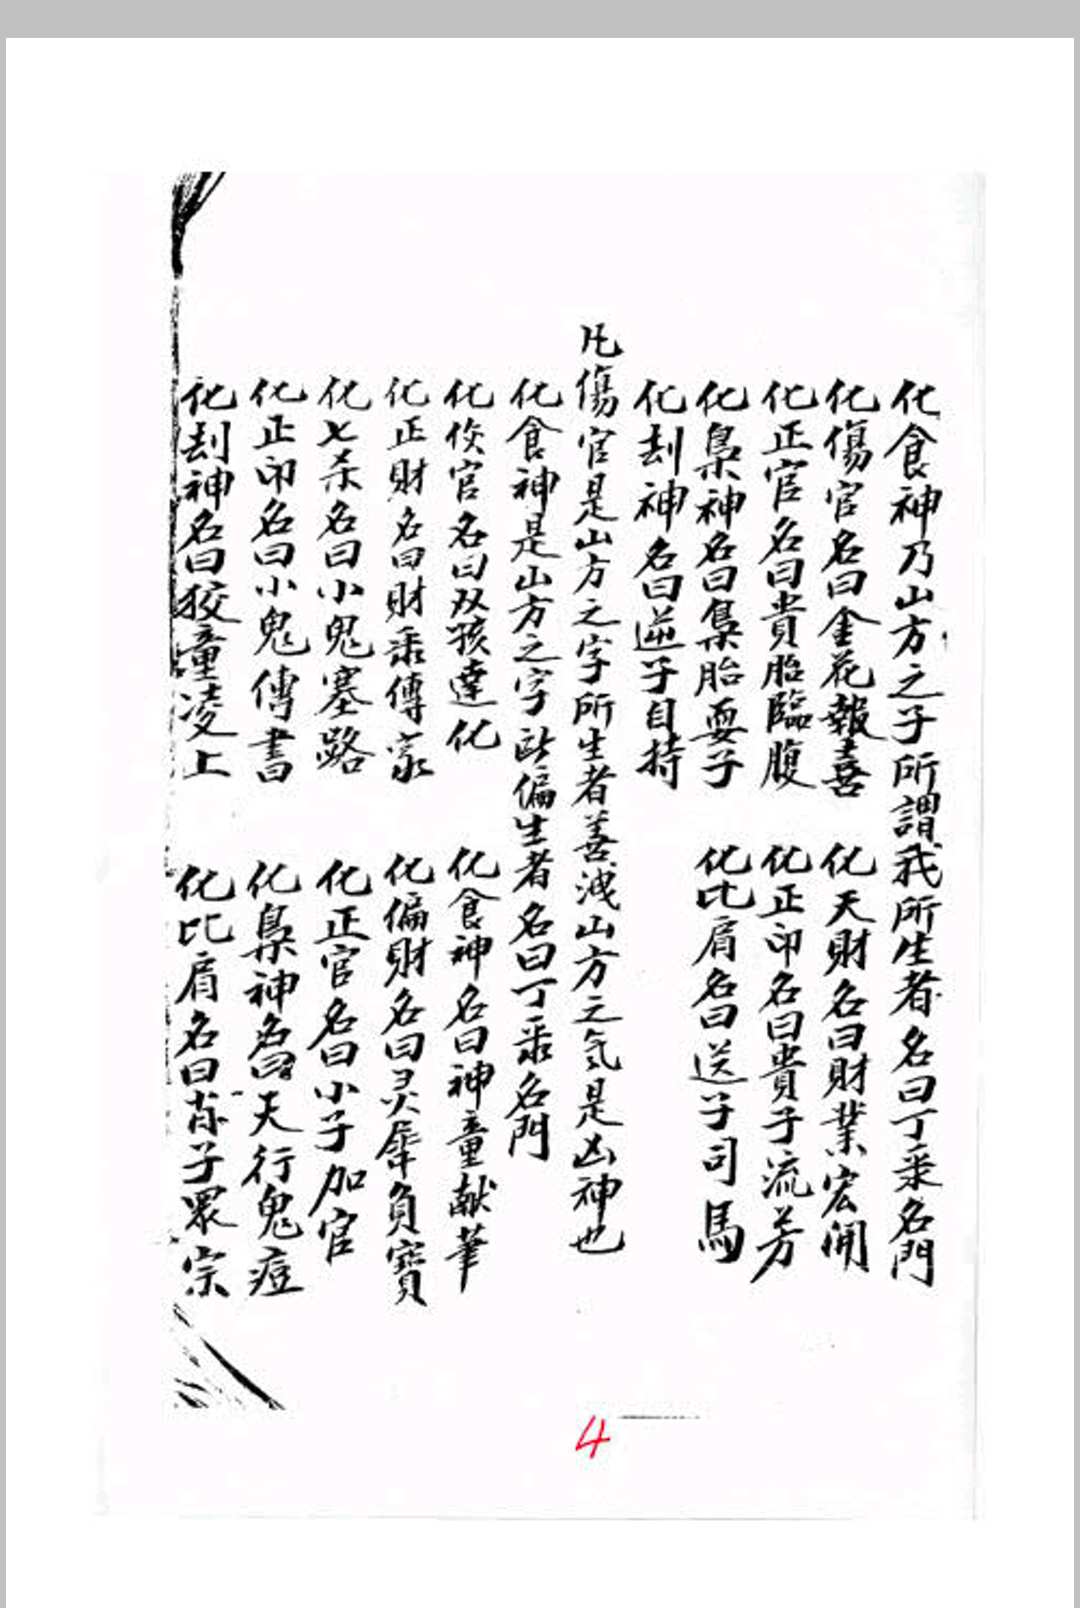 化食神乃山方之子所謂我所生者名曰丁乘名門
化傷官名曰金花報喜 化天財名曰財業宏開
化正官名曰貴胎臨腹 化正印名曰貴子流芳
化梟神名曰梟胎耍子 化比肩名曰送子司馬
化刦神名曰逆子自持
凡傷官是山方之字所生者善洩山方之気是凶神也
化食神是山方之字此偏生者名曰丁乘名門
化官名曰双孩達化 化食神名曰神童献筆
化正財名曰財乘傳家 化偏財名曰灵犀負寶
化七杀名曰小鬼塞路 化正官名曰小子加官
化正印名曰小鬼傳書 化梟神名曰天行鬼痘
化刦神名曰狡童凌上 化比肩名曰肖子眾宗
4